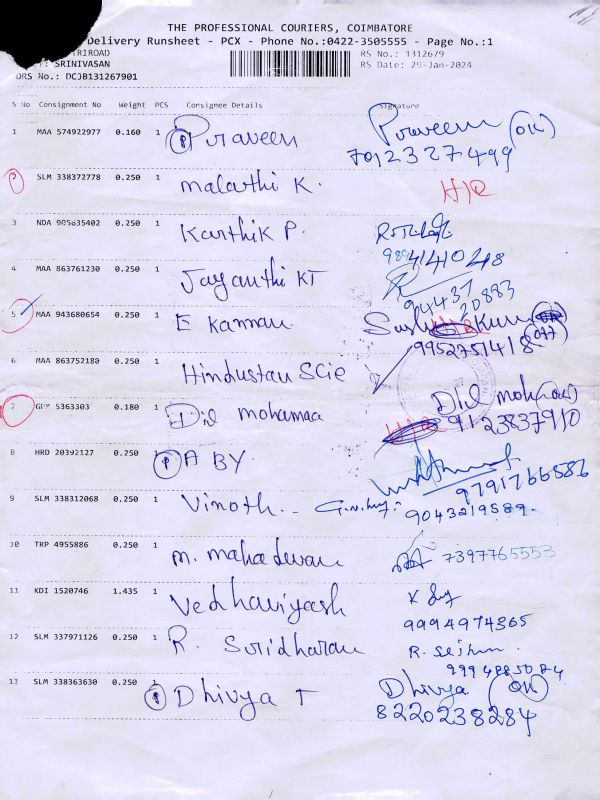 THE PROFESSIONAL COURIERS, COIMBATORE
Delivery Runsheet - PCX - Phone No.:0422-3505555 - Page No.:1
RS No.: 1312679
SRINIVASAN
RS Date: 29-Jan-2024
DRS No.: DCJB131267901
S No Consignment No Weight PCS Consignee Details Signature
1 MAA 574922977 0.160 1 P Praveen Praveen (OU)
7012327499
2 SLM 338372778 0.250 1 Malathi K. H/R
3 NDA 905635402 0.250 1 Karthik P.
4 MAA 863761230 0.250 1 Jayanthi KT
94437 20883
5 MAA 943680654 0.250 1 E Kannan
9952751418
6 MAA 863752180 0.250 1 Hindustan SCie
7 GPM 5363303 0.180 1 Dil mohamaa Dil
9123837910
8 HRD 20392127 0.250 P A BY
9791766586
9 SLM 338312068 0.250 1 Vinoth.
9043219589.
10 TRP 4955886 0.250 1 M. Mahadevan 7397765553
11 KDI 1520746 1.435 1 Vedhaviyash K
9994974365
12 SLM 337971126 0.250 1 R. Sridharan R.
13 SLM 338363630 0.250 1 P Dhivya T Dhivya (OU)
8220238284